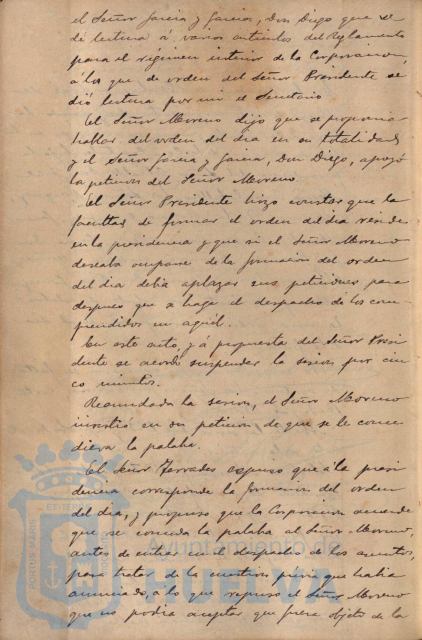 el Señor García y García, Don Diego que se
dé lectura á varios artículos del Reglamento
para el régimen interior de la Corporación,
á los que de orden del Señor Presidente se
dió lectura por mi el Secretario
El Señor Moreno dijo que se proponía
hablar del orden del día en su totalidad
y el Señor García y García, Don Diego, apoyó
la petición del Señor Moreno.
El Señor Presidente hizo constar que la
facultad de formar el orden del día reside
en la presidencia y que si el Señor Moreno
deseaba ocuparse de la formación del orden
del día debía aplazar sus peticiones para
despues que se haga el despacho de los com-
prendidos en aquél.
En este acto, y á propuesta del Señor Presi-
dente se acordó suspender la sesión por cin-
co minutos.
Reanudada la sesión, el Señor Moreno
insistió en su petición de que se le conce-
diera la palabra.
El Señor Terrades expuso que á la presi-
dencia corresponde la formación del orden
del día, y propuso que la Corporación acuerde
que se conceda la palabra al Señor Moreno,
antes de entrar en el despacho de los asuntos,
para tratar de la cuestión previa que había
anunciado, á lo que repuso el Señor Moreno
que no podía aceptar que fuera objeto de la
PORTUS MARIS
Ayuntamiento de
HUELVA